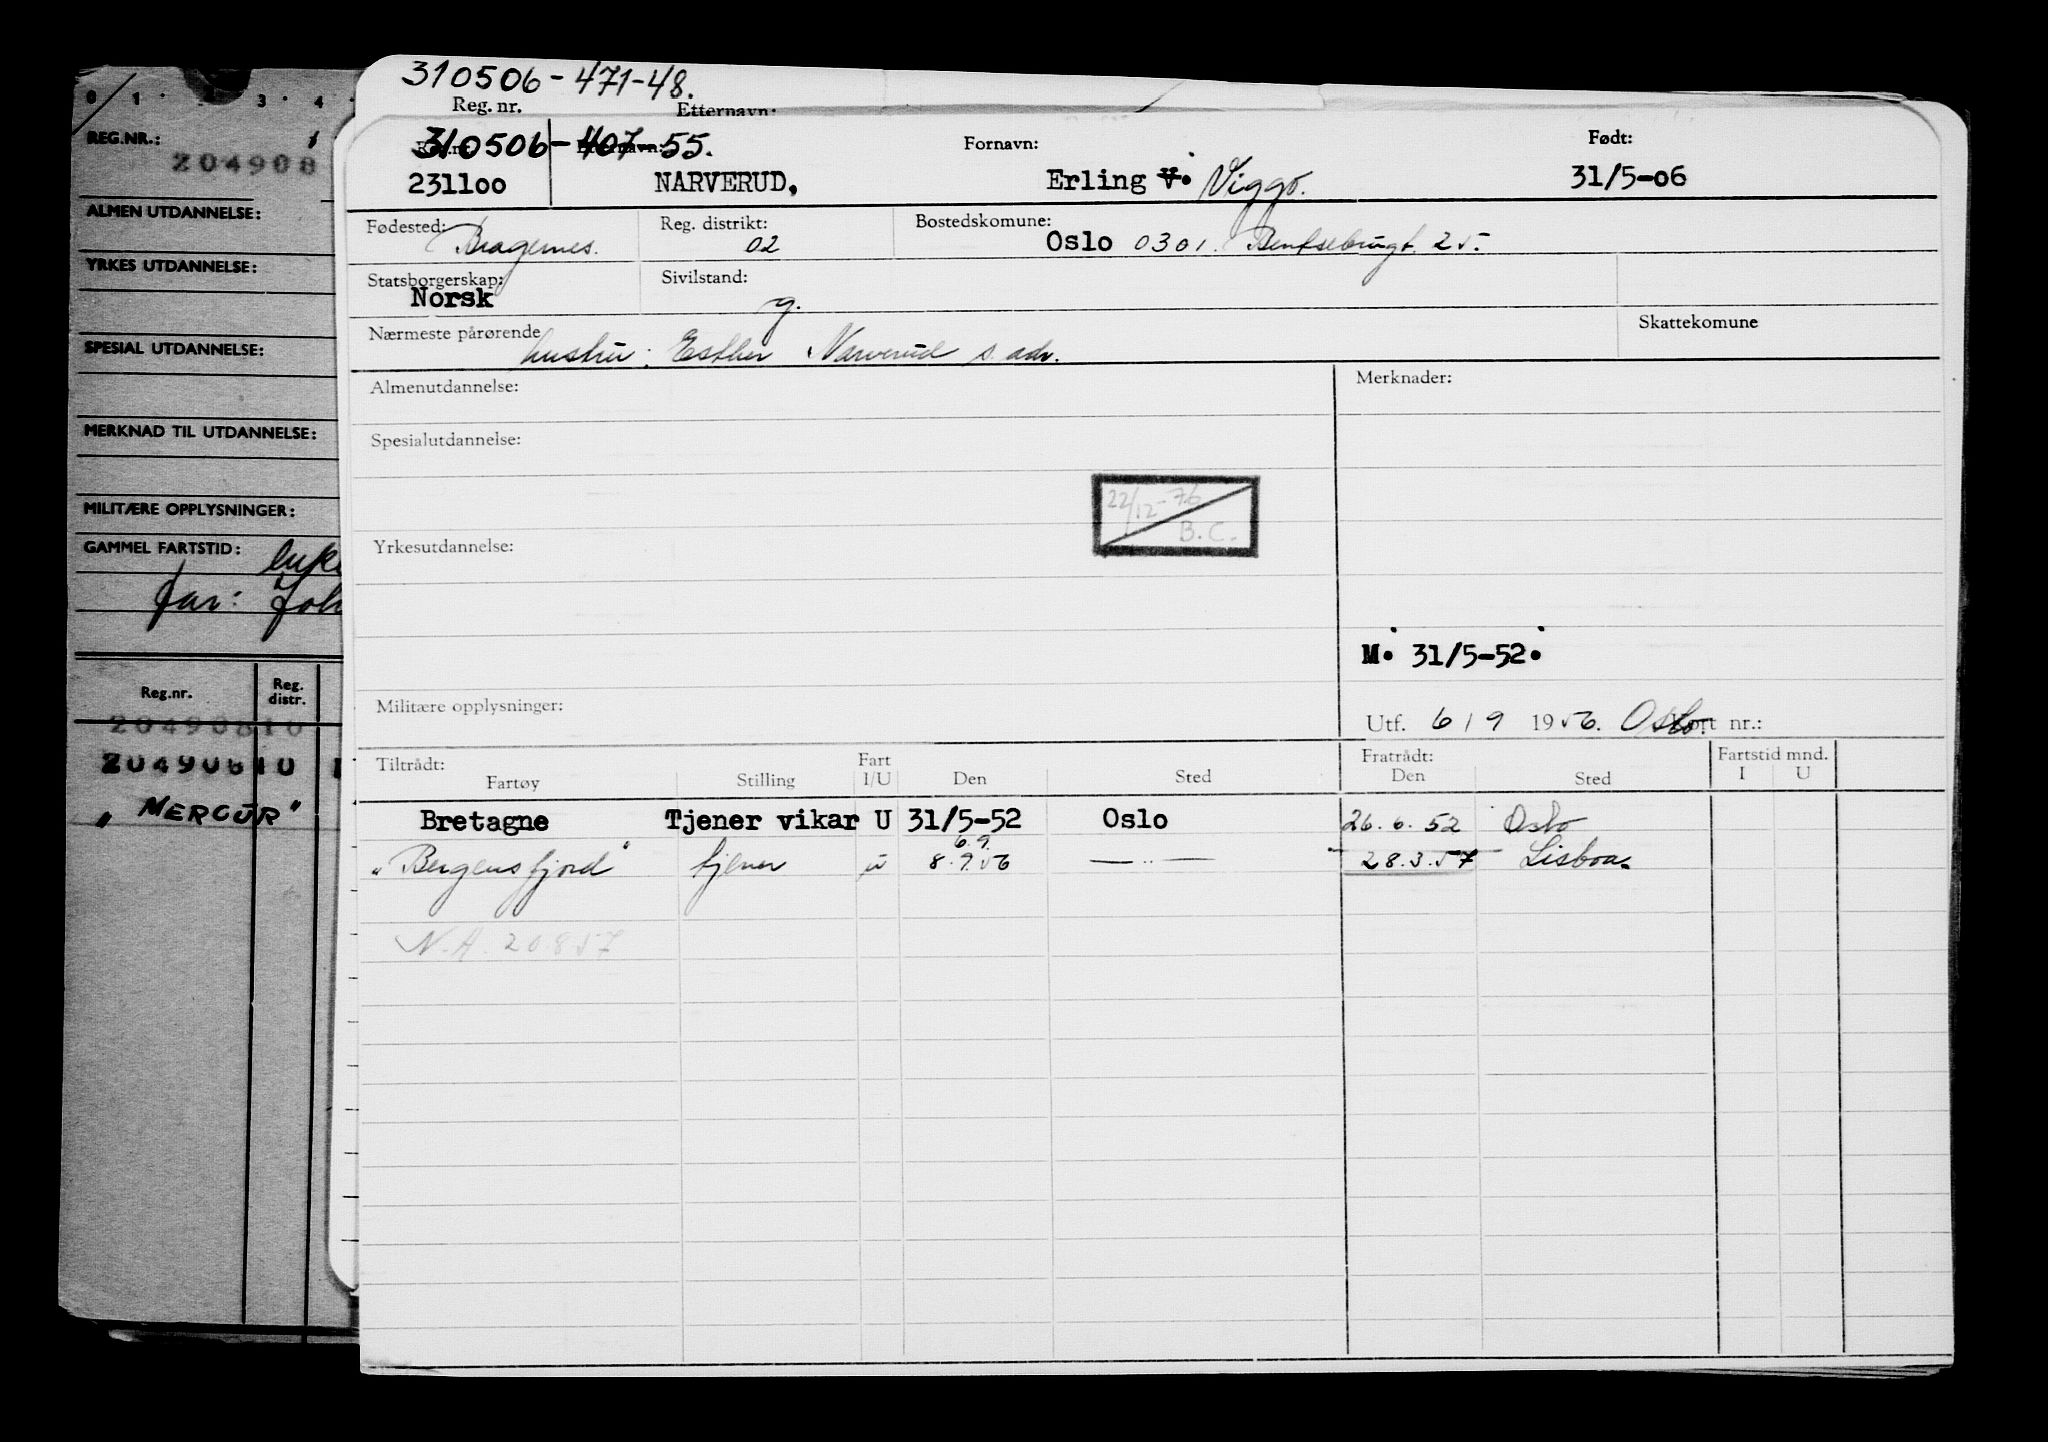 310506-471-48.
Reg. nr. Etternavn:
310506-407-55. Fornavn: Født:
231100 NARVERUD, Erling V. Viggo. 31/5-06
Fødested: Bragernes. Reg. distrikt: 02 Bostedskommune: Oslo 0301. Bentsebrugt. 25.
Statsborgerskap: Norsk Sivilstand: g.
Nærmeste pårørende hustru: Esther Narverud s. adr. Skattekomune
Almenutdannelse: Merknader:
Spesialutdannelse:
22/12-76
B.C.
Yrkesutdannelse:
M. 31/5-52.
Militære opplysninger: Utf. 6/9 1956. Oslo nr.:
Tiltrådt: Fartøy Stilling Fart I/U Den Sted Fratrådt: Den Sted Fartstid mnd. I U
Bretagne Tjener vikar U 31/5-52 Oslo 26.6.52 Oslo
6.9.
"Bergensfjord" tjener u 8.9.56 — ,, — 28.3.57 Lisboa.
N.A. 20.8.57
0 1 3 4
REG.NR.: 204908
ALMEN UTDANNELSE:
YRKES UTDANNELSE:
SPESIAL UTDANNELSE:
MERKNAD TIL UTDANNELSE:
MILITÆRE OPPLYSNINGER:
GAMMEL FARTSTID:
far: Joh
Reg.nr. Reg. distr.
20490810
20490810
"MERCUR"